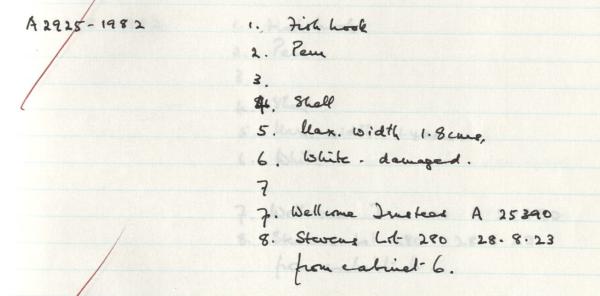 A2925-1982 1. Fish hook
2. Peru
3.
4. Shell
5. Max. width 1.8cms,
6. White - damaged.
7
7. Wellcome Trustees A 25390
8. Stevens Lot 280 28.8.23
from cabinet 6.